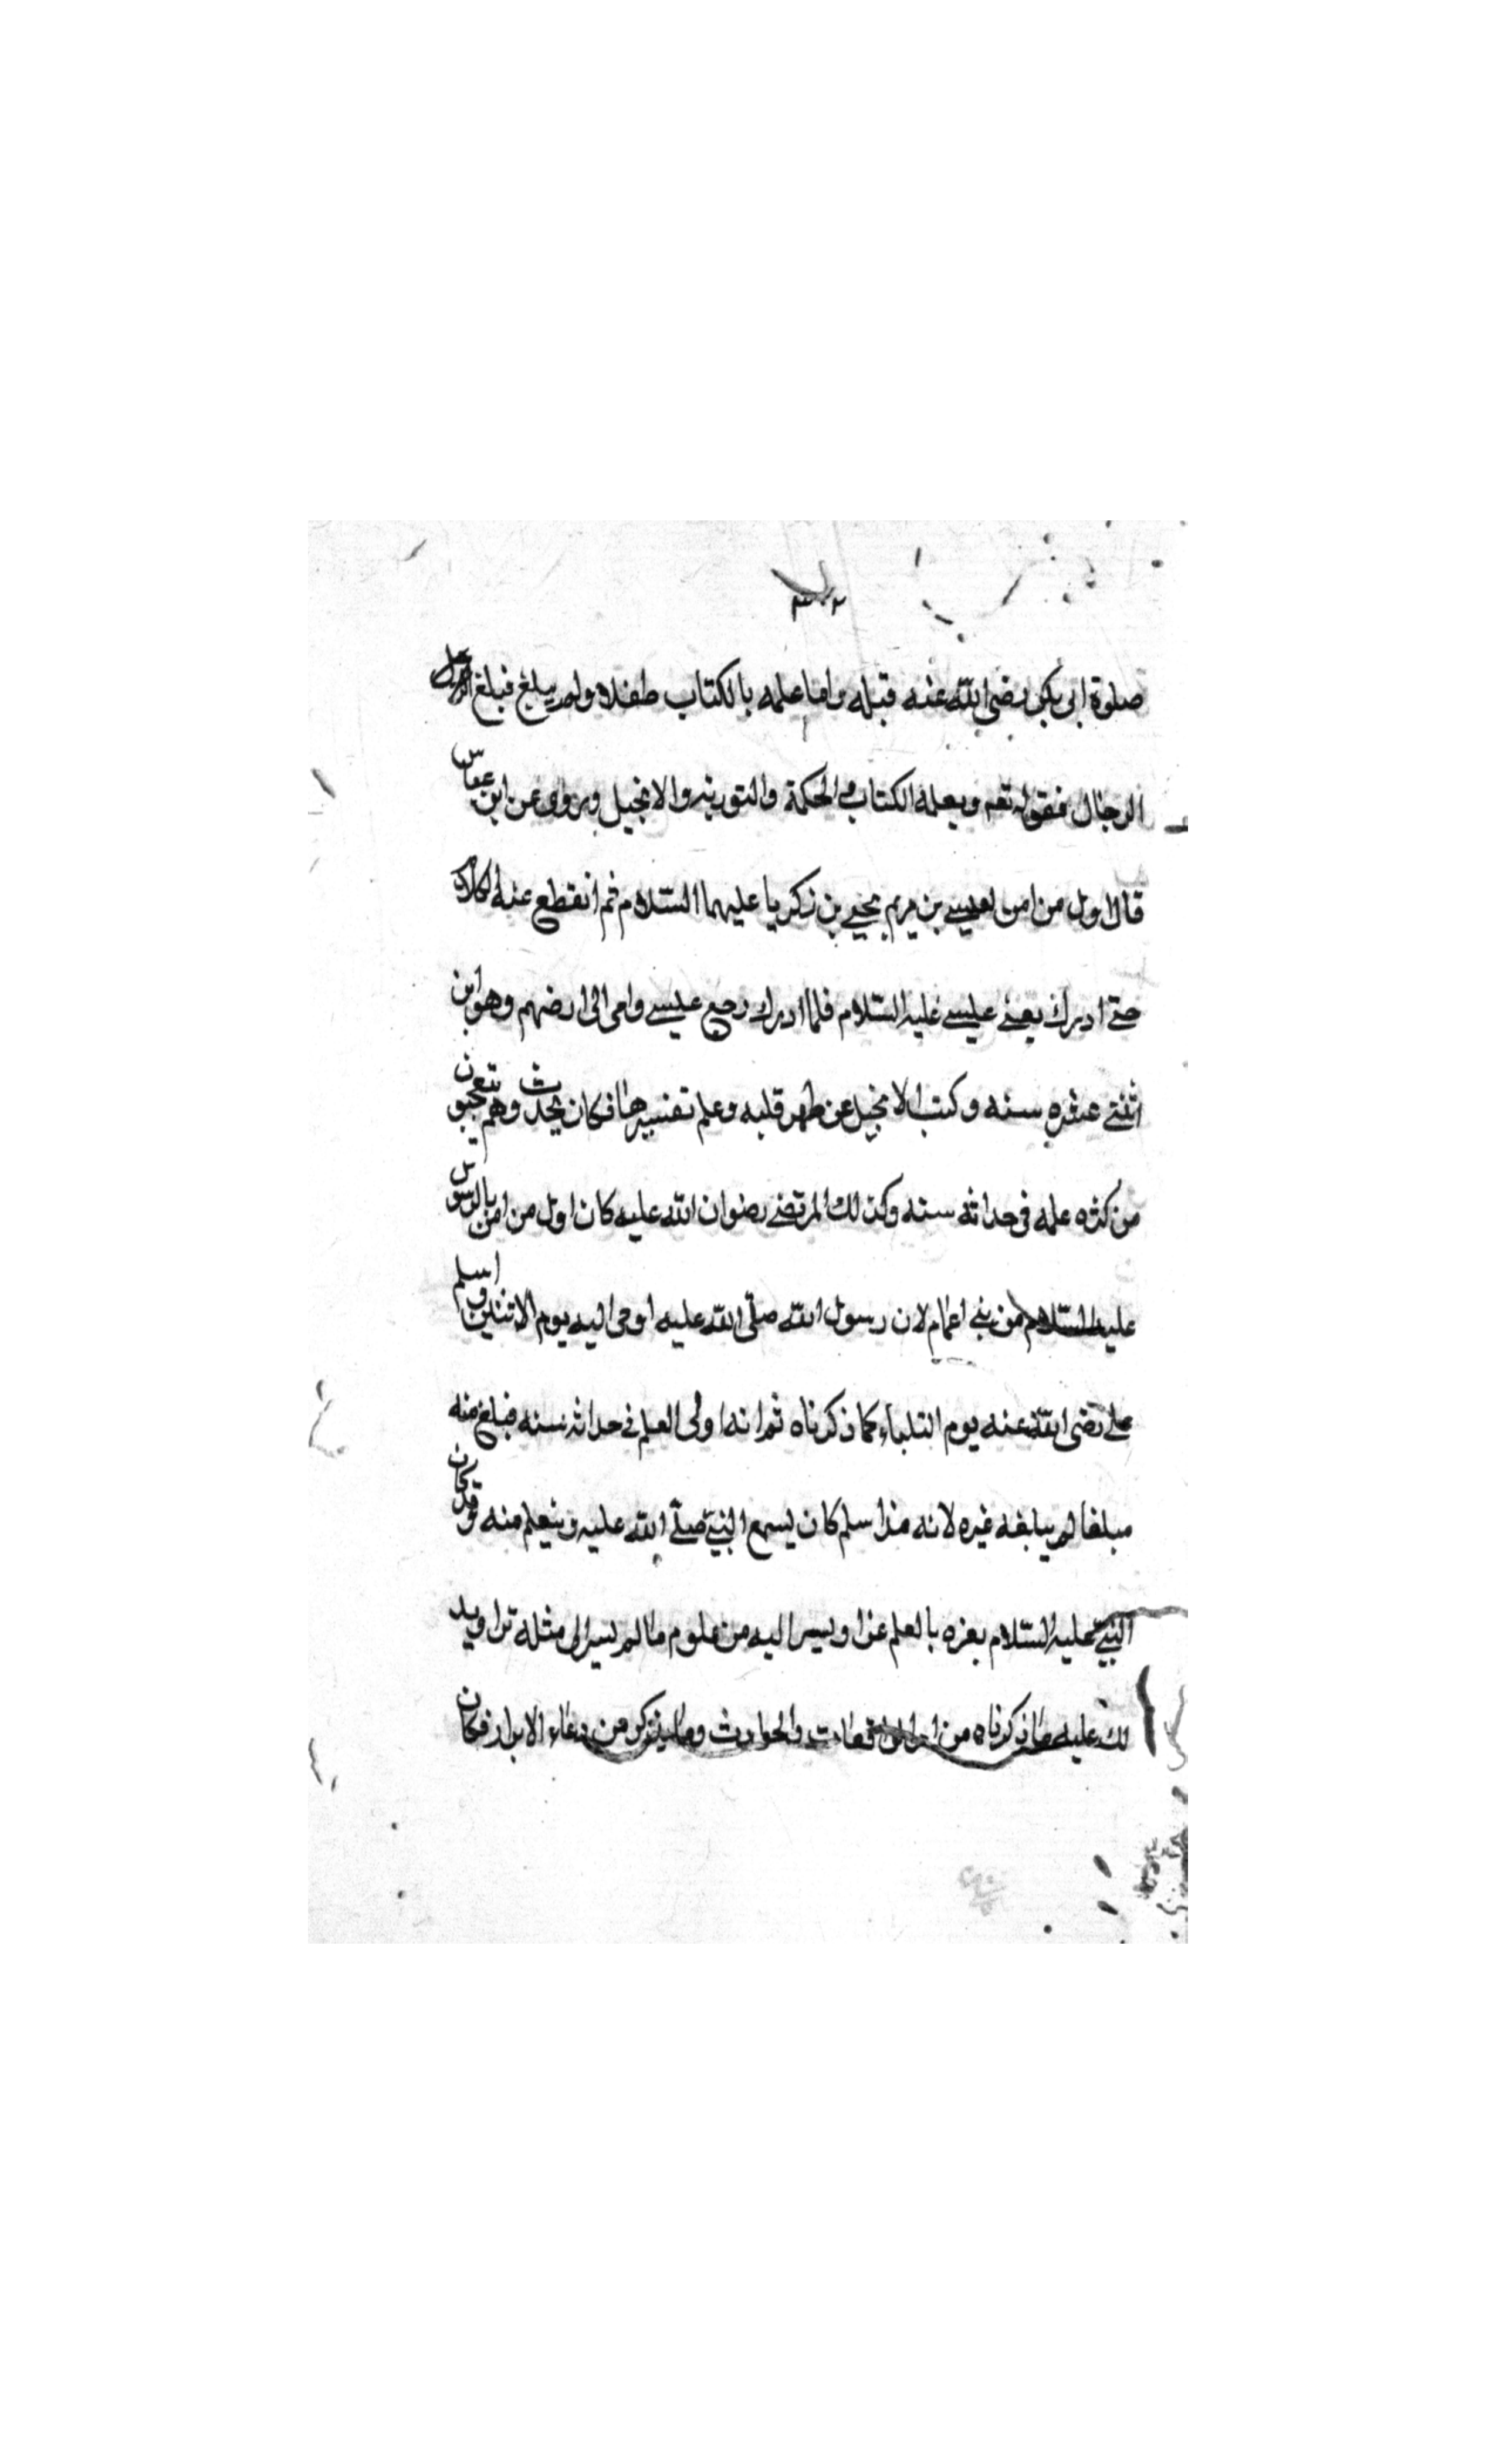 ٣٠٢
صلوة ابى بكر رضى الله عنه قبله واما علمه بالكتاب طفلا ولم يبلغ فبلغ
الرجال فقوله تعه ويعلمه الكتاب والحكمة والتورية والانجيل ويروى عن ابن عباس
قال اول من امن لعيسے بن مريم يحيى بن زكريا عليهما السّلام ثم انقطع عنه الكلام
حتے ادرك يعنے عليسے عليه السّلام فلما ادرك رجع عليسے وامى الى ارضهم وهو ابن
اثنتے عشره سنه وكتب الانجيل عن ظهر قلبه وعلم تفسيرها فكان يحدث وهم يتعجبون
من كثره علمه فى حداثة سنه وكذلك المرتضے رضوان الله عليه كان اول من امن بالرسول
عليه السّلام من بنے اعمام لان رسول الله صلّى الله عليه اوحى اليه يوم الاثنين واسلم
علے رضى الله عنه يوم الثلباء كما ذكرناه ثم انه اولى العلم فى حداثه سنه فبلغ منه
مبلغا لم يبلغه غيره لانه منذ اسلم كان يسمع النبے صلّے الله عليه ويتعلم منه وقد كان
النبے عليه السّلام يعزه بالعلم عزا ويسر اليه من علوم ما لم يسر الى مثله
لك عليه ما ذكرناه من والحوادث وما يذكر من دعاء الابرار فكان